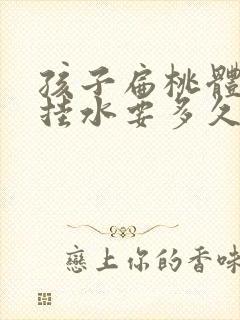 孩子扁桃體
挂水要多久
戀上你的香味